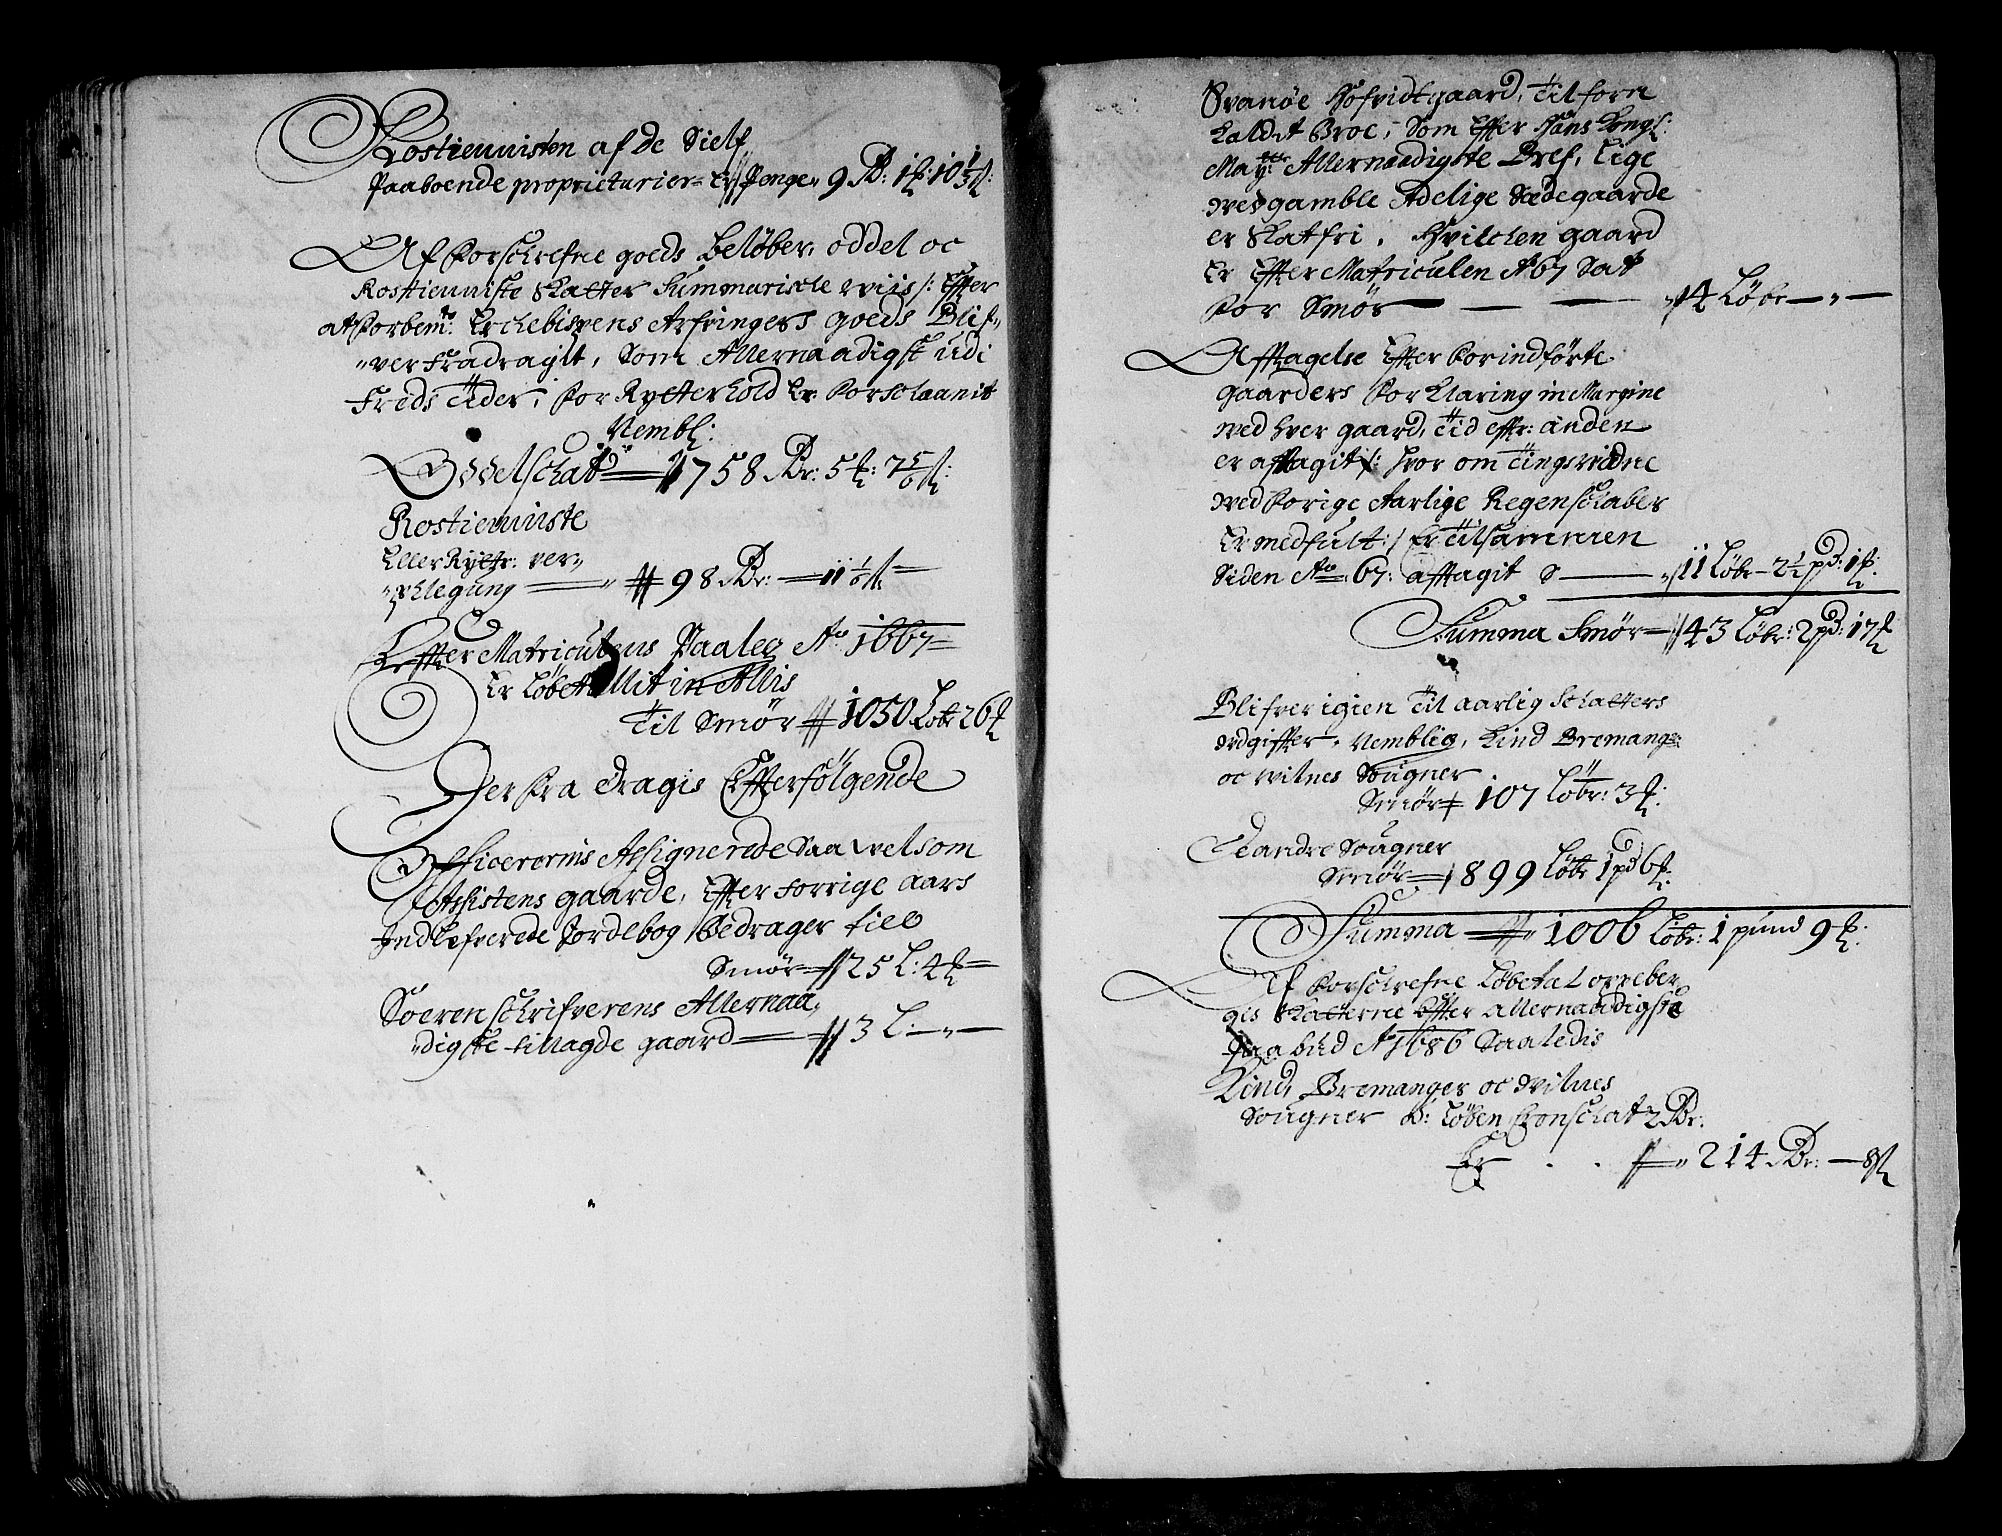 Rostienisten af de Sielf
Paaboende proprietarier Er Penge 9 Dr: 1 ß: 10 1/3 ß:
Af forschrefne goeds beløber, oddel oc
Rostieniste Skatter Summarischle wiis /: Effter
at forbemte: Erchebispens Arfvingers goeds Blif-
ver fradragit, Som Allernaadigst udi
Freds Tider, for Rytterhold Er forschaanit
Nembl:
Oddelschat 1758 Dr: 5 ß: 7 5/6 ß:
Rostieniste
Eller Rytter: ver-
plegung 98 Dr: — 11 1/6 ß
Effter Matriculens Paaleg Ao 1667
Er løbet Alt in Allis
Til Smør 1050 Løbr 26 ß
Der fra dragis Effterfølgende
Officerernis Assignerede Saa wel som
Assistens gaarde, Effter forrige aars
Indlefverede Jordebog Bedrager till
Smør 25 L: 4 ß
Soeren schrifverens Allernaa-
digste tillagde gaard 3 L: — " —
Svanøe Hofvidtgaard, Tilforn
kaldet Broe, Som Effter Hans Kongl:
Mayts: Allernaadigste Bref, Lige
wed gamble Adelige Sædegaarde
er Skatfri, Hvilchen gaard
Er Effter Matriculen Ao 67 Sat
for Smør — — 4 Løbr — " —
Afftagelse Effter forindførte
gaarders forklaring in Margine
wed hver gaard, Tid effter: anden
er afftagit /: hvor om Tingswidne
wed forige Aarlige Regenschaber
Er medfult :/ Er Tilsammen
Siden Ao 67: afftagit S — 11 Løbr — 2 1/2 pd: 1 ß:
Summa Smør 43 Løbr: 2 pd: 17 ß
Blifver igien Til aarlig Schatters
udgiffter, Nemblig, Kind Bremanger
oc wilnes Sougner
Smør 107 Løbr: 3 ß:
De andre Sougner
Smør 899 Løbr 1 pd 6 ß:
Summa 1006 Løbr: 1 pund 9 ß:
Af forschrefne Løbetal opbeber
gis Skatterne Effter allernaadigste
paabud Ao 1686 Saaledis
Kind, Bremanger oc wilnes
Sougner a: Løben 2 Dr:
Er . . 214 Dr: — 8 ß